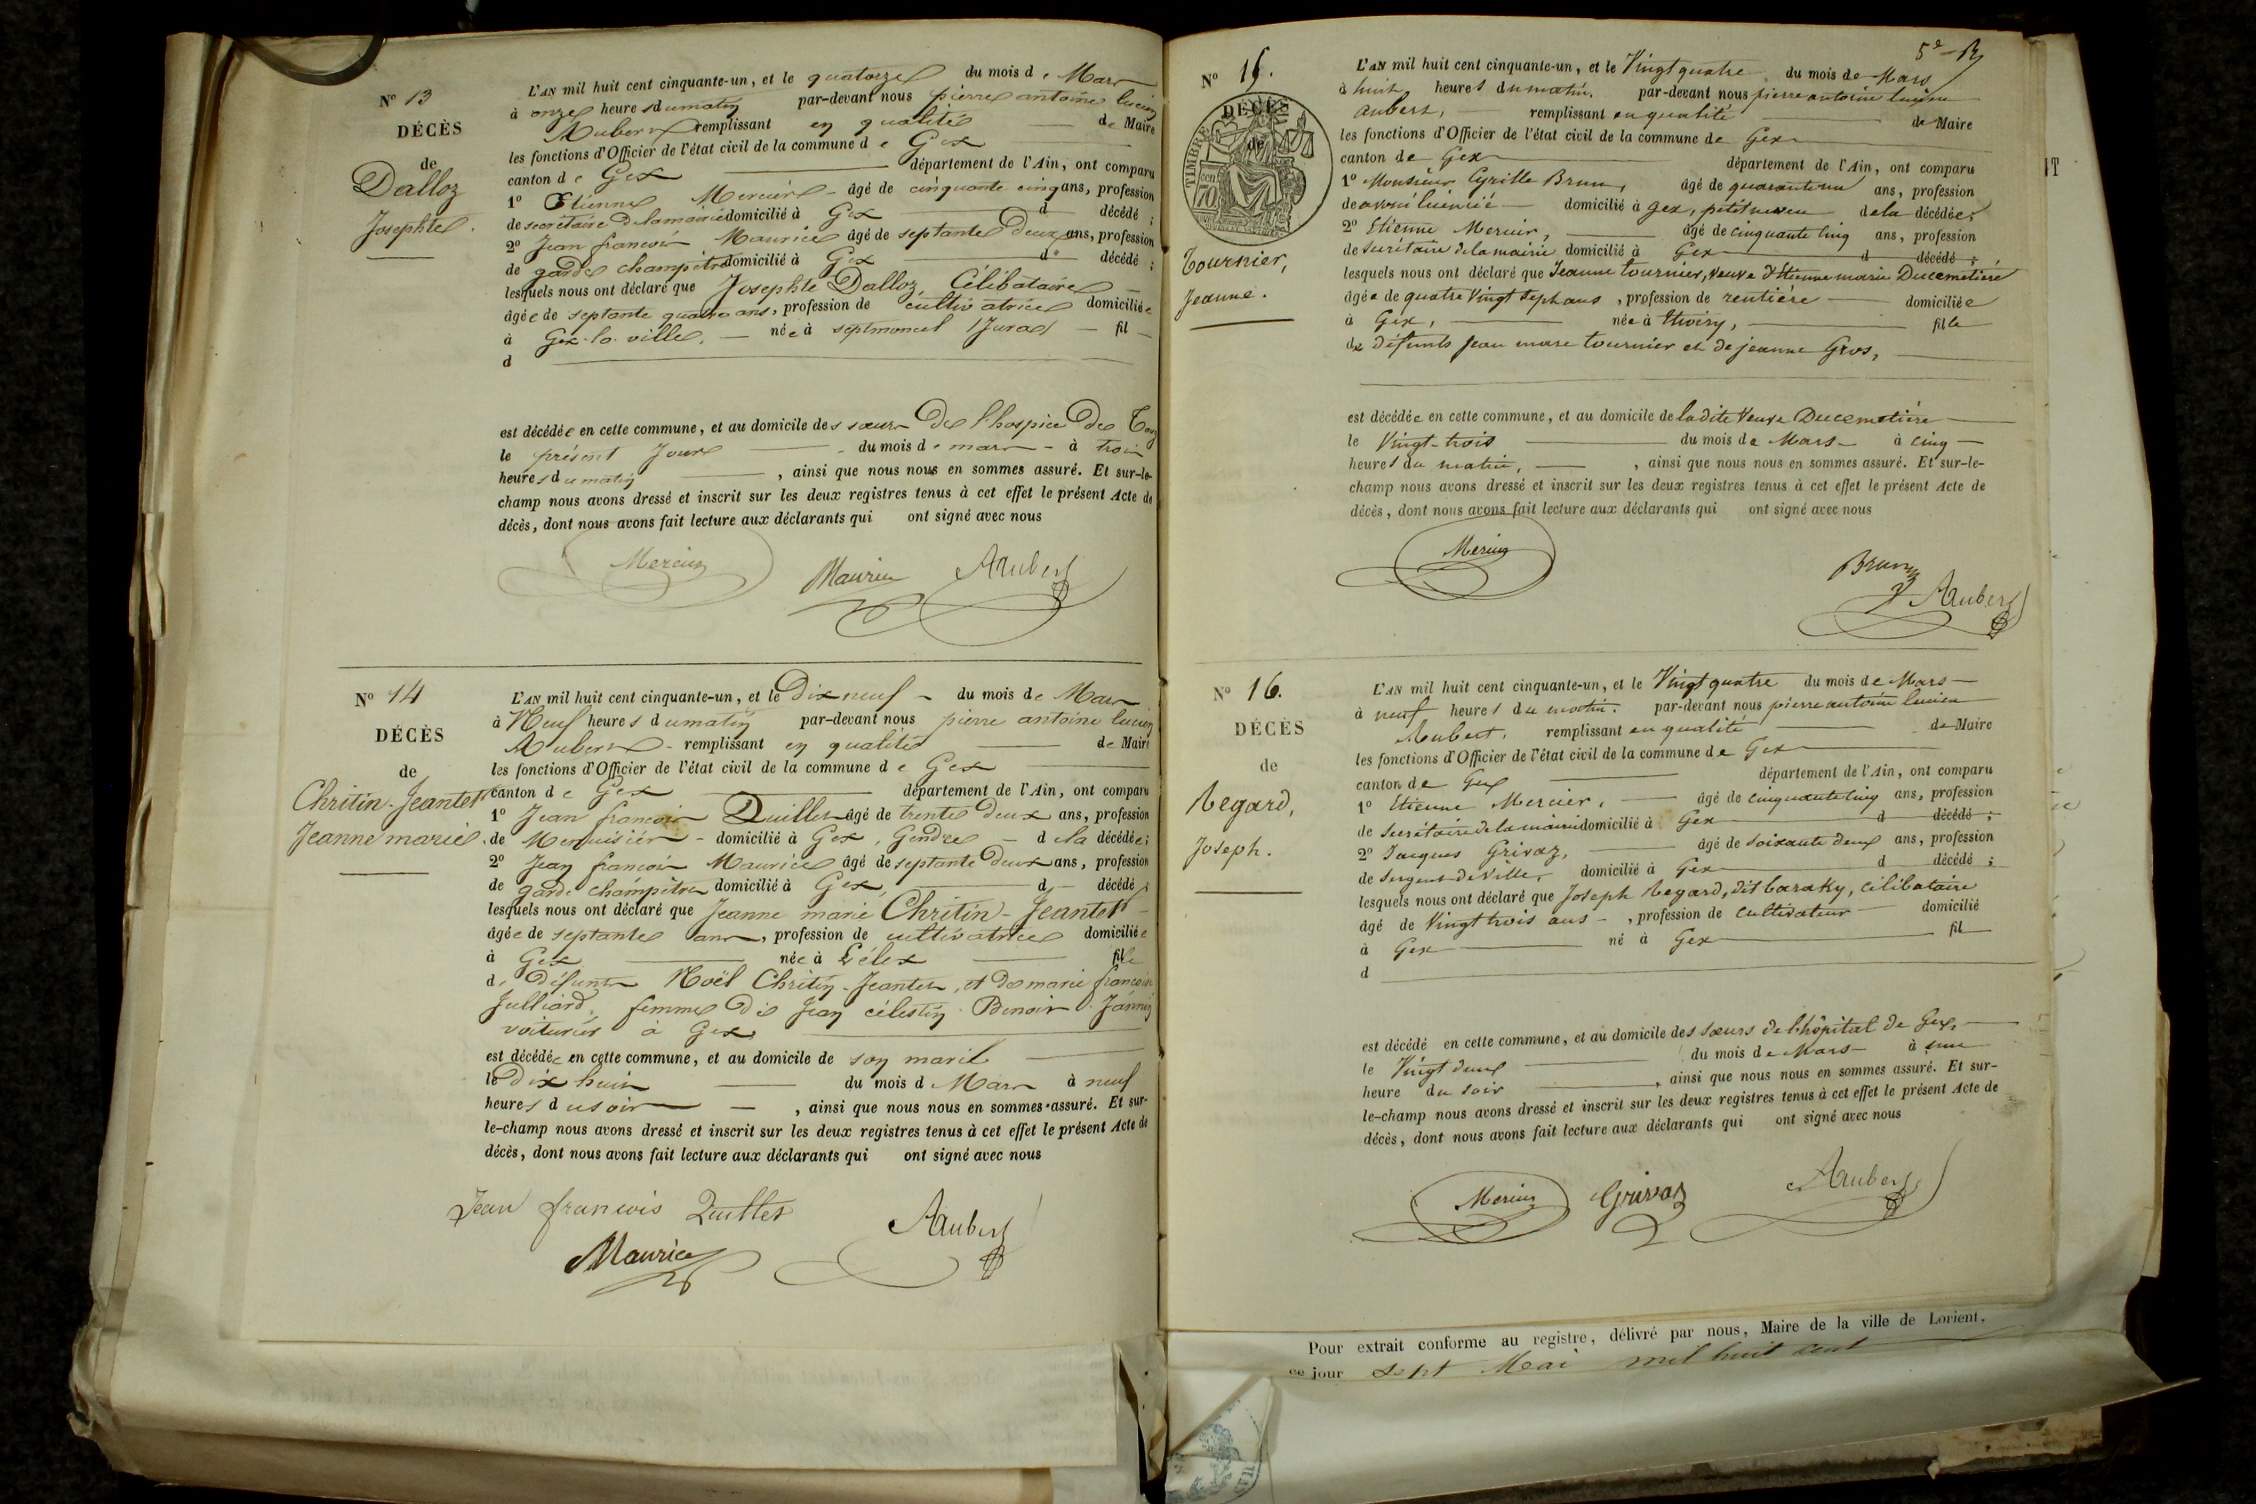 Nº 13
DÉCÈS
de
Dalloz
Josephte.
L'AN mil huit cent cinquante-un, et le quatorze du mois de Mars
à onze heures du matin par-devant nous pierre antoine lucien
Aubert remplissant en qualité de Maire
les fonctions d'Officier de l'état civil de la commune de Gex
canton de Gex département de l'Ain, ont comparu
1º Etienne Mercier âgé de cinquante cinq ans, profession
de secrétaire de la mairie domicilié à Gex d décédé ;
2º Jean françois Maurice âgé de septante deux ans, profession
de garde champêtre domicilié à Gex d décédé ;
lesquels nous ont déclaré que Josephte Dalloz, Célibataire
âgée de septante quatre ans, profession de cultivatrice domiciliée
à Gex-la-ville, née à septmoncel (Jura) fil
d
est décédée en cette commune, et au domicile des sœurs de l'hospice de
le présent jour du mois de mars à trois
heures du matin, ainsi que nous nous en sommes assuré. Et sur-le-
champ nous avons dressé et inscrit sur les deux registres tenus à cet effet le présent Acte de
décès, dont nous avons fait lecture aux déclarants qui ont signé avec nous
Mercier Maurice Aubert
Nº 14
DÉCÈS
de
Chritin-Jeantet
Jeanne marie.
L'AN mil huit cent cinquante-un, et le Dix neuf du mois de Mars
à Neuf heures du matin par-devant nous pierre antoine lucien
Aubert remplissant en qualité de Maire
les fonctions d'Officier de l'état civil de la commune de Gex
canton de Gex département de l'Ain, ont comparu
1º Jean françois Quillet âgé de trente deux ans, profession
de Menuisier domicilié à Gex, Gendre de la décédée ;
2º Jean françois Maurice âgé de septante deux ans, profession
de garde champêtre domicilié à Gex, d décédé ;
lesquels nous ont déclaré que Jeanne marie Chritin-Jeantet
âgée de septante ans, profession de cultivatrice domiciliée
à Gex née à Lélex fille
de défunts Noël Chritin-Jeantet, et de marie françoise
Julliard, femme de Jean célestin Benoit
voiturier à Gex
est décédée en cette commune, et au domicile de son mari
le Dix huit du mois de Mars à neuf
heures du soir, ainsi que nous nous en sommes assuré. Et sur-
le-champ nous avons dressé et inscrit sur les deux registres tenus à cet effet le présent Acte de
décès, dont nous avons fait lecture aux déclarants qui ont signé avec nous
Jean francois Quillet Aubert
Maurice
Nº 15.
DÉCÈS
de
TIMBRE
70
Tournier,
Jeanne.
L'AN mil huit cent cinquante-un, et le Vingt quatre du mois de Mars
à huit heures du matin. par-devant nous pierre antoine lucien
aubert, remplissant en qualité de Maire
les fonctions d'Officier de l'état civil de la commune de Gex
canton de Gex département de l'Ain, ont comparu
1º Monsieur Cyrille Brun, âgé de quarante un ans, profession
de avoué licencié domicilié à Gex, petit neveu de la décédée ;
2º Etienne Mercier, âgé de cinquante cinq ans, profession
de secrétaire de la mairie domicilié à Gex d décédé ;
lesquels nous ont déclaré que Jeanne tournier, veuve d'Etienne marie Ducemetière
âgée de quatre Vingt sept ans, profession de rentière domiciliée
à Gex, née à thoiry, fille
de défunts Jean marc tournier et de jeanne Gros,
est décédée en cette commune, et au domicile de ladite Veuve Ducemetière
le Vingt-trois du mois de Mars à cinq
heures du matin, ainsi que nous nous en sommes assuré. Et sur-le-
champ nous avons dressé et inscrit sur les deux registres tenus à cet effet le présent Acte de
décès, dont nous avons fait lecture aux déclarants qui ont signé avec nous
Mercier Brun
Aubert
Nº 16.
DÉCÈS
de
Regard,
Joseph.
L'AN mil huit cent cinquante-un, et le Vingt quatre du mois de Mars
à neuf heures du matin. par-devant nous pierre antoine lucien
Aubert, remplissant en qualité de Maire
les fonctions d'Officier de l'état civil de la commune de Gex
canton de Gex département de l'Ain, ont comparu
1º Etienne Mercier, âgé de cinquante cinq ans, profession
de secrétaire de la mairie domicilié à Gex d décédé ;
2º Jacques Grivaz, âgé de soixante deux ans, profession
de Sergent de Ville, domicilié à Gex d décédé ;
lesquels nous ont déclaré que Joseph Regard, dit baraky, célibataire
âgé de Vingt trois ans, profession de cultivateur domicilié
à Gex né à Gex fil
d
est décédé en cette commune, et au domicile des sœurs de l'hôpital de Gex,
le Vingt deux du mois de Mars à une
heure du soir, ainsi que nous nous en sommes assuré. Et sur-
le-champ nous avons dressé et inscrit sur les deux registres tenus à cet effet le présent Acte de
décès, dont nous avons fait lecture aux déclarants qui ont signé avec nous
Mercier Grivaz Aubert
Pour extrait conforme au registre, délivré par nous, Maire de la ville de Lorient,
ce jour sept Mai mil huit cent